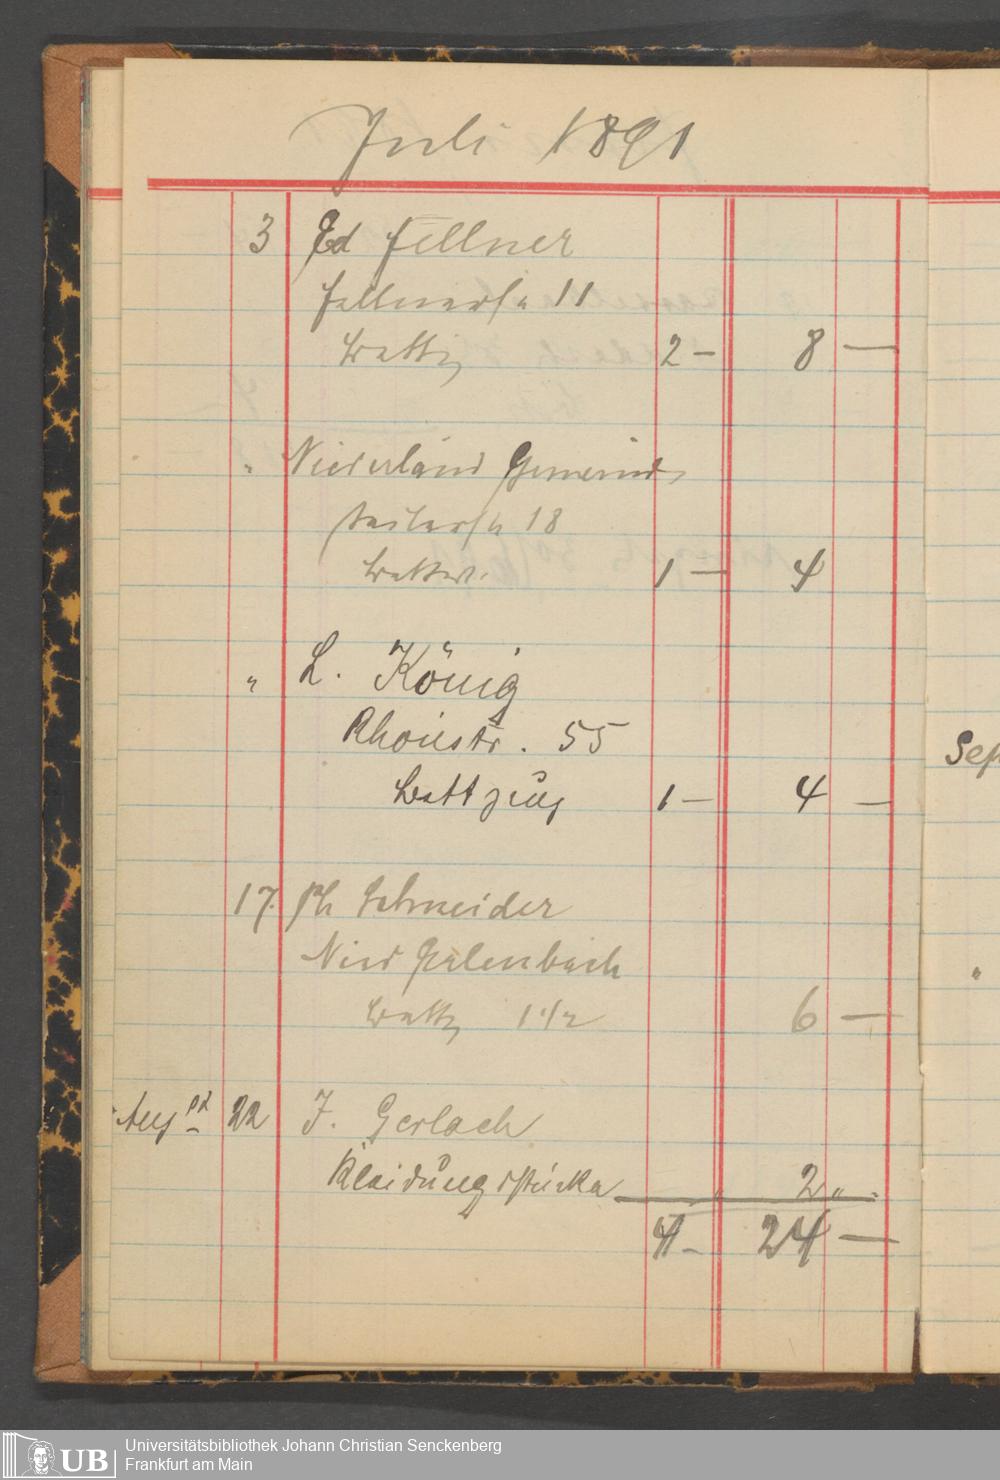 Juli 1891
3 Ed Fellner
Fellnerstr 11
Bettzg 2 — 8 —
" Niederländ Gemeinde
Seilerstr 18
Bettw. 1 — 4
" L. König
Rheinstr. 55
Bettzeug 1 — 4 —
17. Ph Schneider
Nied Erlenbach
Bettzg 1 1/2 6 —
Aug 22 F. Gerlach
Kleidungsstücke " 2 "
4 — 24 —
Sep
"
UB
Universitätsbibliothek Johann Christian Senckenberg
Frankfurt am Main